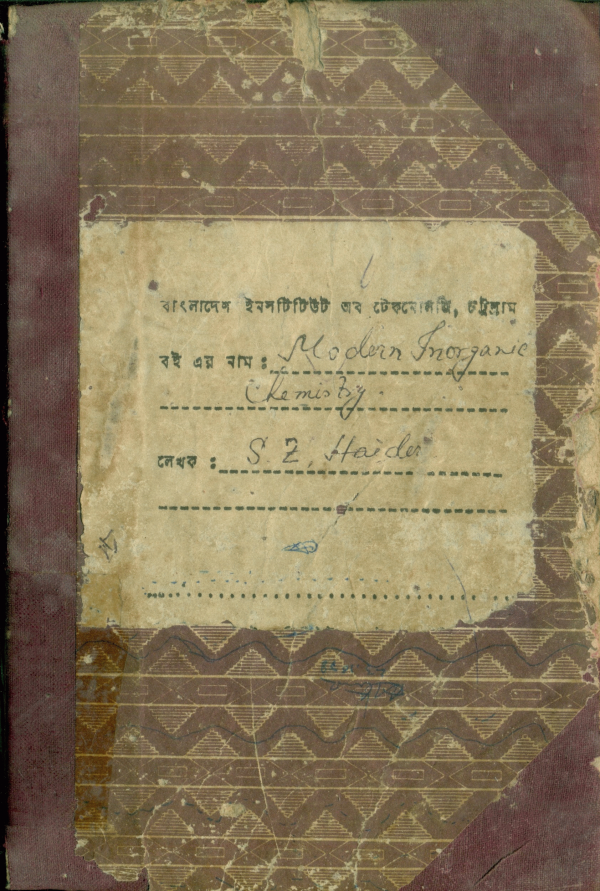 বাংলাদেশ ইনসটিটিউট অব টেকনোলজি, চট্টগ্রাম
বই এর নাম : Modern Inorganic
Chemistry.
লেখক : S. Z. Haider